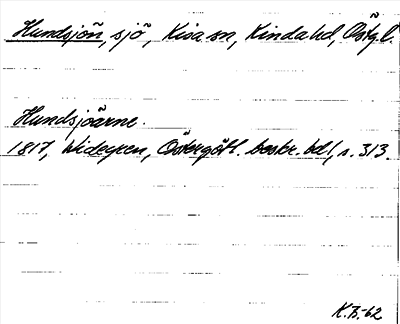 Hundsjön, sjö, Kisa sn, Kinda hd, Östgl.
Hundsjöarne.
1817, Widegren, Östergötl. beskr. bd 1, s. 313.
K.B.-62